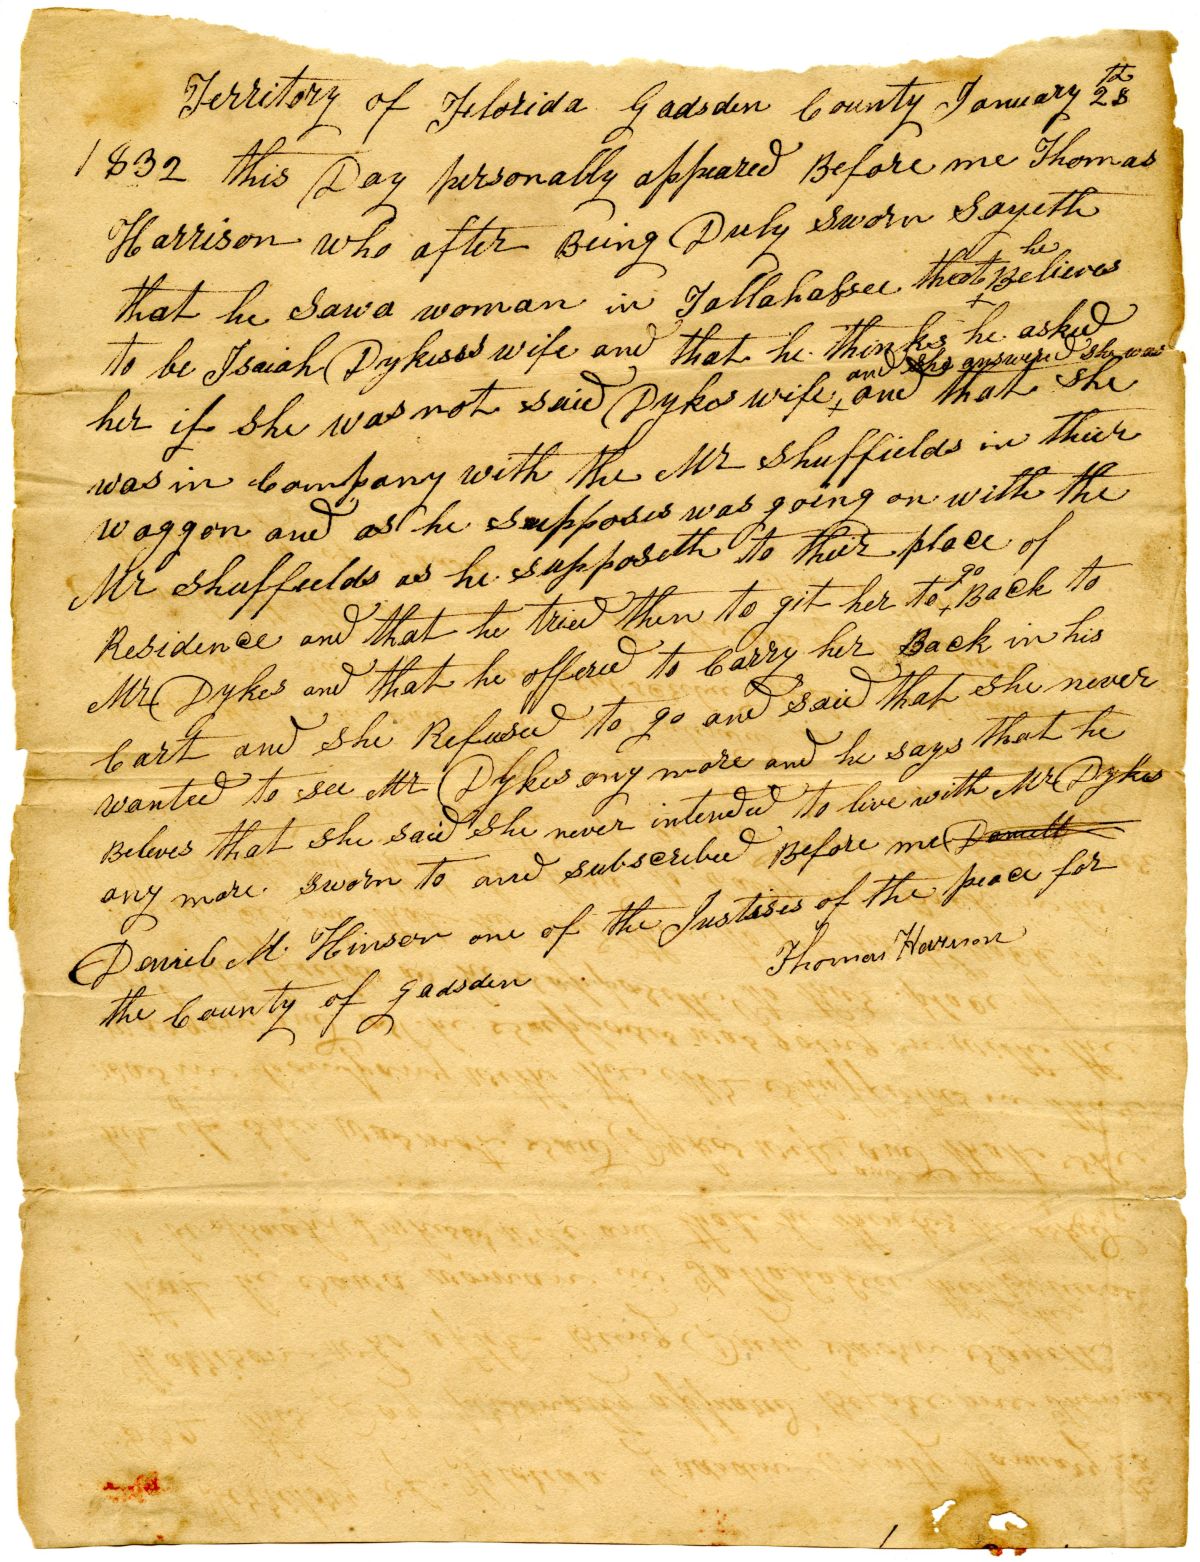 Territory of Florida Gadsden County January 28th
1832 this Day personally appeared Before me Thomas
Harrison who after Being Duly sworn Sayeth
that he Sawa woman in Tallahassee that he Believes
to be Isaiah Dykess wife and that he thinks he asked
her if she was not said Dykes wife and she answered she was and that she
was in Company with the Mr Shuffields in thier
waggon and as he supposes was going on with the
Mr Shuffields as he supposeth to thier place of
Residence and that he tried then to git her to go Back to
Mr Dykes and that he offered to Carry her Back in his
Cart and she Refused to go and said that she never
wanted to see Mr Dykes any more and he says that he
Beleves that she said she never intended to live with Mr Dykes
any more sworn to and subscribed Before me
Daniel M. Hinson one of the Justises of the peace for
the County of Gadsden
Thomas Harrison